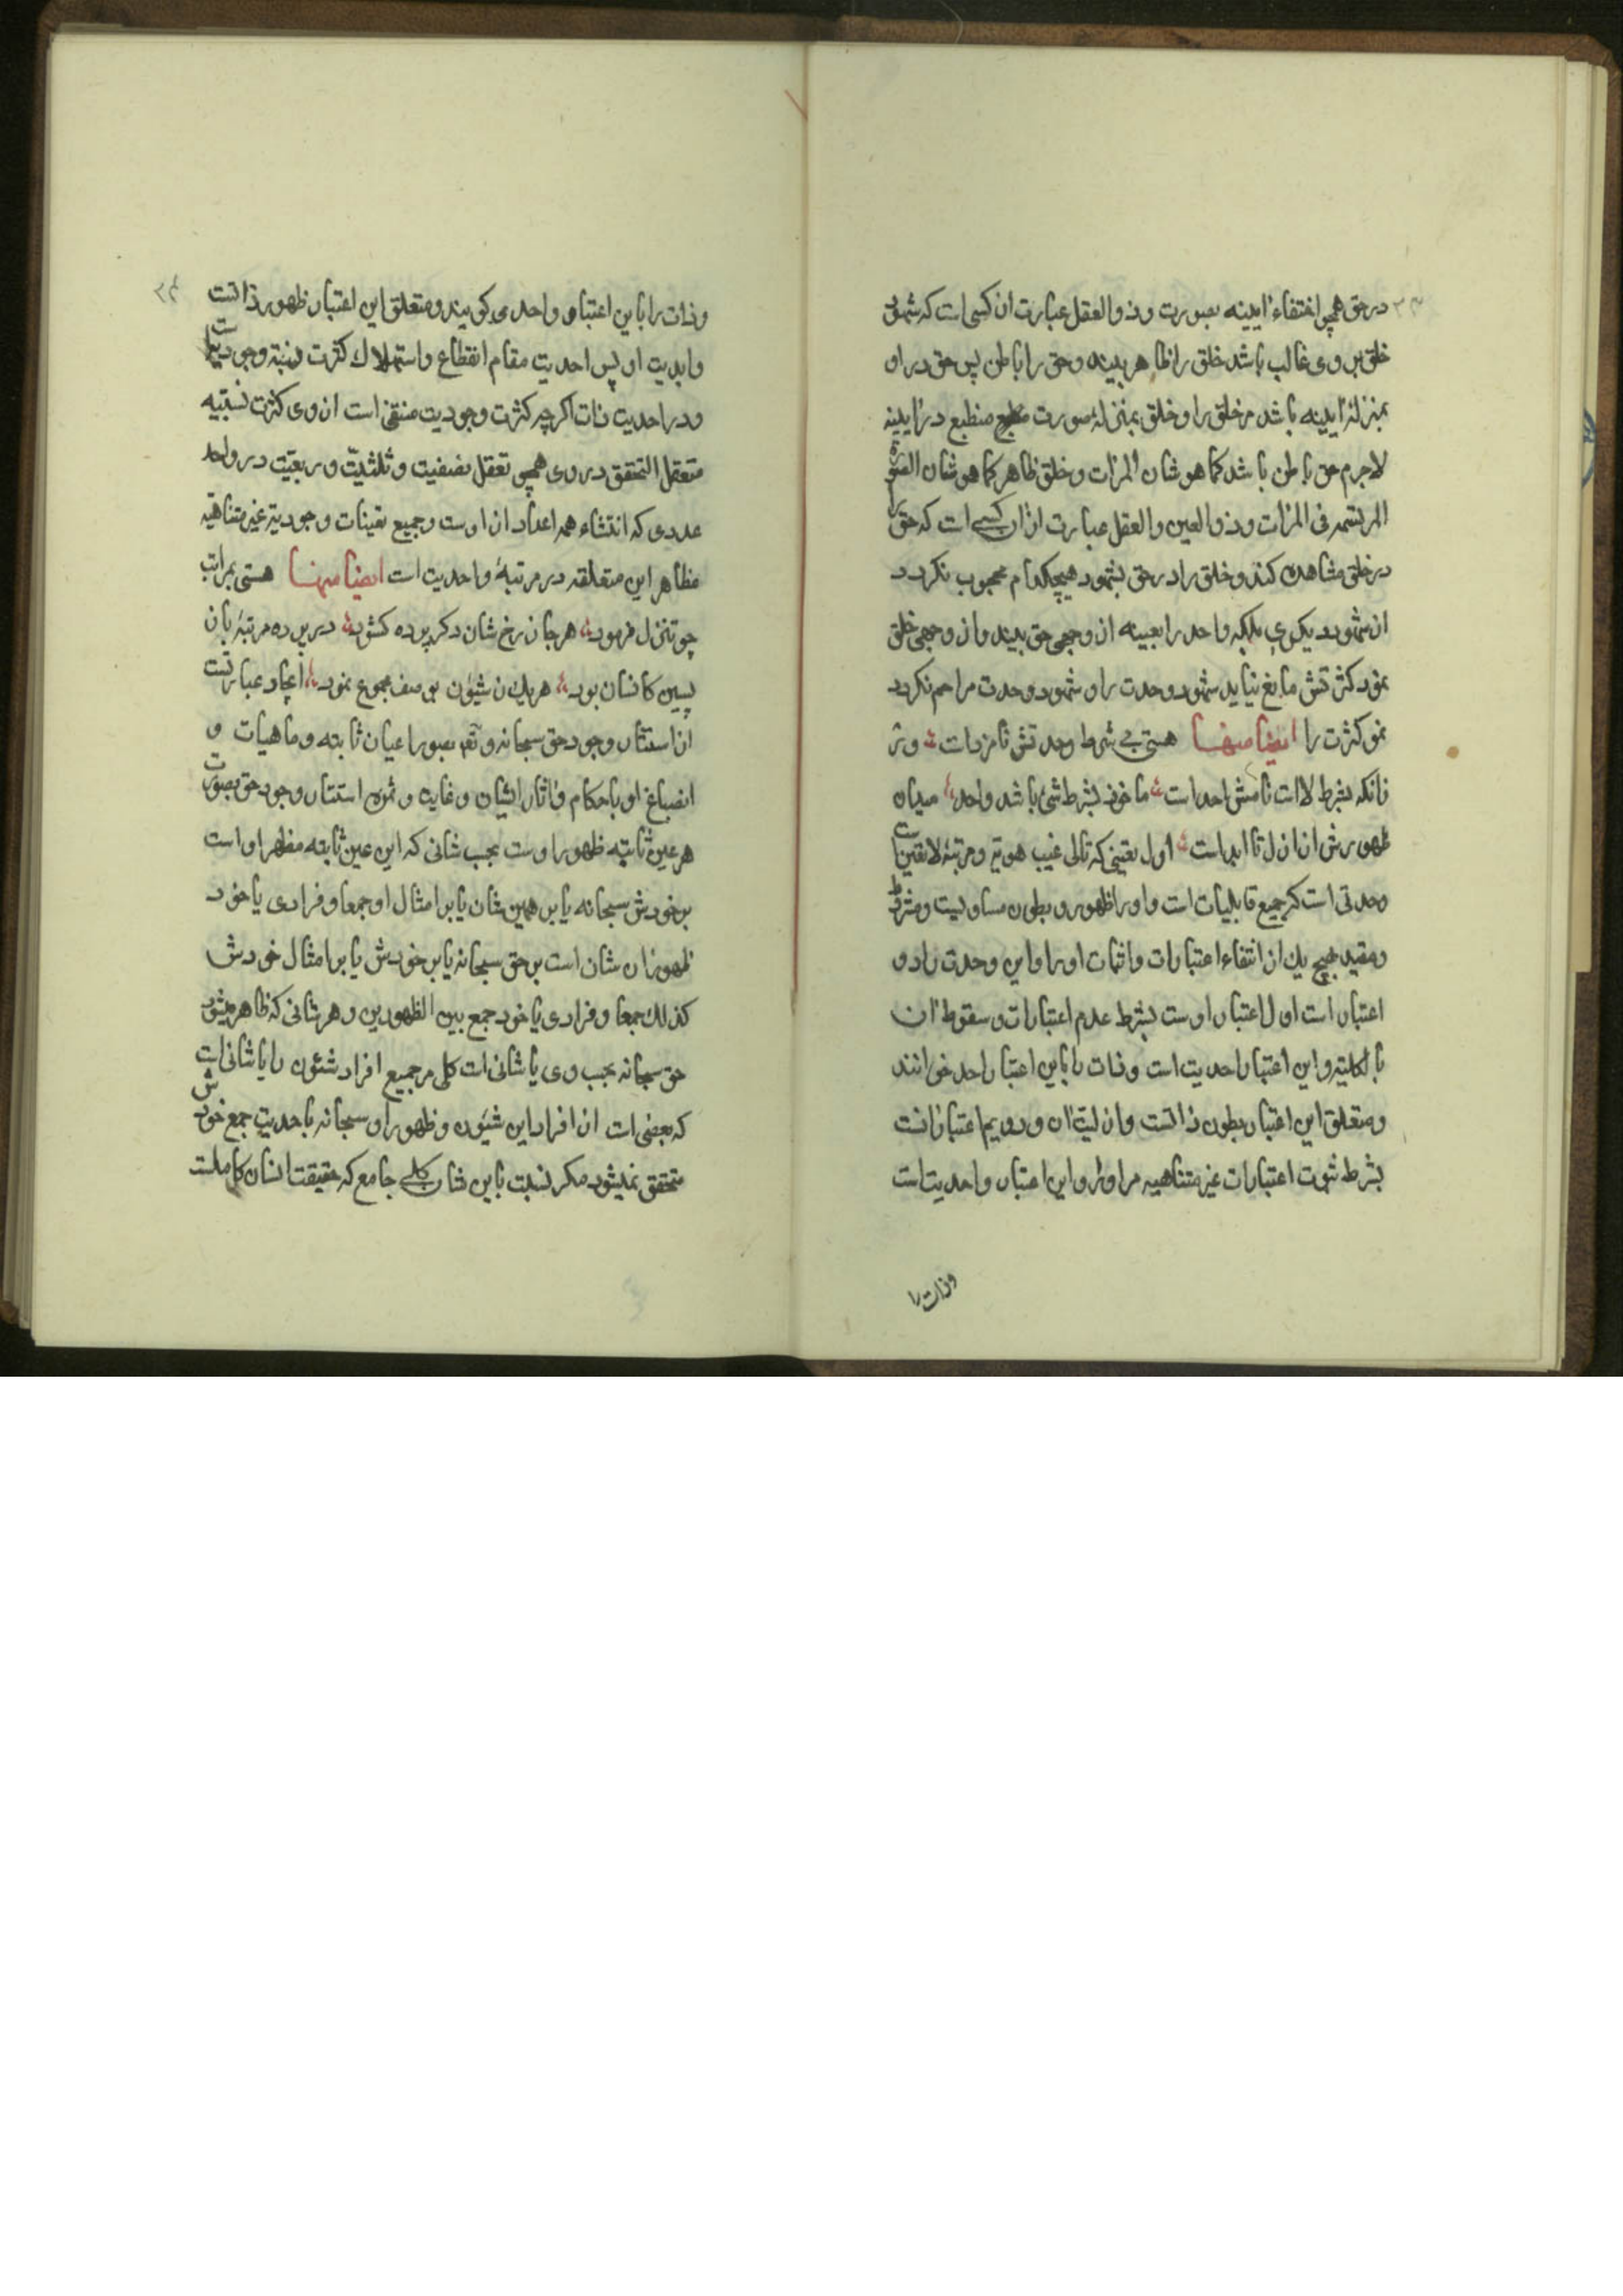 در حق همچو اختفاء آیینه بصورت و ذو العقل عبارت از آن کسی است که شهود
خلق بر وی غالب باشد خلق را ظاهر بیند و حق را باطن پس حق در او
بمنزلهٔ آیینه باشد مر خلق را و خلق بمنزلهٔ صورت منطبع در آیینه
لاجرم حق باطن باشد کما هو شان المرات و خلق ظاهر کما هو شان الصورة
المرتسمه فی المرات و ذو العین و العقل عبارت از آن کسی است که حق را
در خلق مشاهده کند و خلق را در حق بشهود هیچکدام محجوب نکردد
از شهود دیکری بلکه واحد را بعینه از وجهی حق بیند و از وجهی خلق
نمود کثرتش مانع نیاید شهود وحدت را و شهود وحدت مزاحم نکردد
نمو کثرت را ایضا منها هستی بی شرط وحدتش نامزدات ور
زانکه بشرط لاست نامش احد است ماخوذ بشرط شیٔ باشد واحد میدان
ظهورش از ازل تا ابد است اول تعینی که تالی غیب هویة و مرتبهٔ لا تعین است
وحدتی است که جمیع قابلیات است و او را ظهور و بطون مساویست و مشروط
و مقید بهیچ یک از انتفاء اعتبارات و اثبات او را و این وحدت را دو
اعتبار است اول اعتبار اوست بشرط عدم اعتبارات و سقوط آن
بالکلیه و این اعتبار احدیت است و ذات را باین اعتبار احد خوانند
و متعلق این اعتبار بطون ذاتست و ازلیت آن و دویم اعتبار آنست
بشرط ثبوت اعتبارات غیر متناهیه مر او را و این اعتبار واحدیت است
وذات را
و ذات را باین اعتبار واحد می کویند و متعلق این اعتبار ظهور ذاتست
و ابدیت او پس احدیت مقام انقطاع و استهلاک کثرت نسبیة وجودیست
و در احدیت ذات اکرچه کثرت وجودیت منتفی است از وی کثرت نسبیه
متعقل التحقق در وی همچو تعقل نصفیت و ثلثیت و ربعیت در واحد
عددی که انتشاء همه اعداد از اوست و جمیع تعینات وجودیة غیر متناهیه
مظاهر این متعلقه در مرتبهٔ واحدیت است ایضا منها هستی بمراتب
چو تنزل فرمود هر جا ز رخ شان دکر پرده کشود در پرده مرتبه بان
پسین کانسان بود هر یک ز شیون بوصف مجموع نمود ایجاد عبارتست
از استتار وجود حق سبحانه و تعم بصور اعیان ثابته و ماهیات و
انصباغ او باحکام و آثار ایشان و غایت و ثمره استتار وجود حق بصورت
هر عین ثابته ظهور اوست بحسب شانی که این عین ثابته مظهر او است
بر خودش سبحانه یا بر همین شان یا بر امثال او جمعا و فرادی یا خود
ظهور آن شان است بر حق سبحانه یا بر خودش یا بر امثال خودش
کذلک جمعا و فرادی یا خود جمع بین الظهورین و هر شانی که ظاهر میشود
حق سبحانه بحسب وی یا شانی است کلی مر جمیع افراد شئون را یا شانی است
که بعضی است از افراد این شیون و ظهور او سبحانه باحدیت جمع خودش
متحقق نمیشود مکر نسبت باین شان کلی جامع که حقیقت انسان کاملست